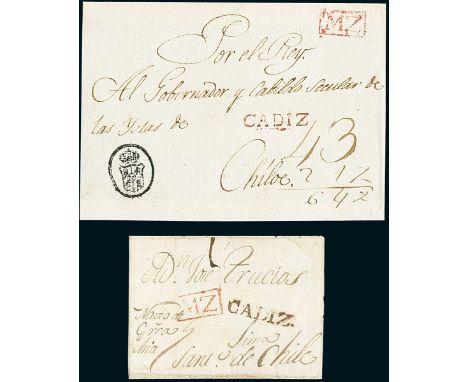 MZ
Por el Rey.
Al Gobernador y Cabildo Secular de
las Yslas de
CADIZ
43
Chiloe. 2 1/2
6 4/2
A Dn. José Trucios
MZ
CADIZ.
Navio de
Grra y
Lima
Sant. de Chile